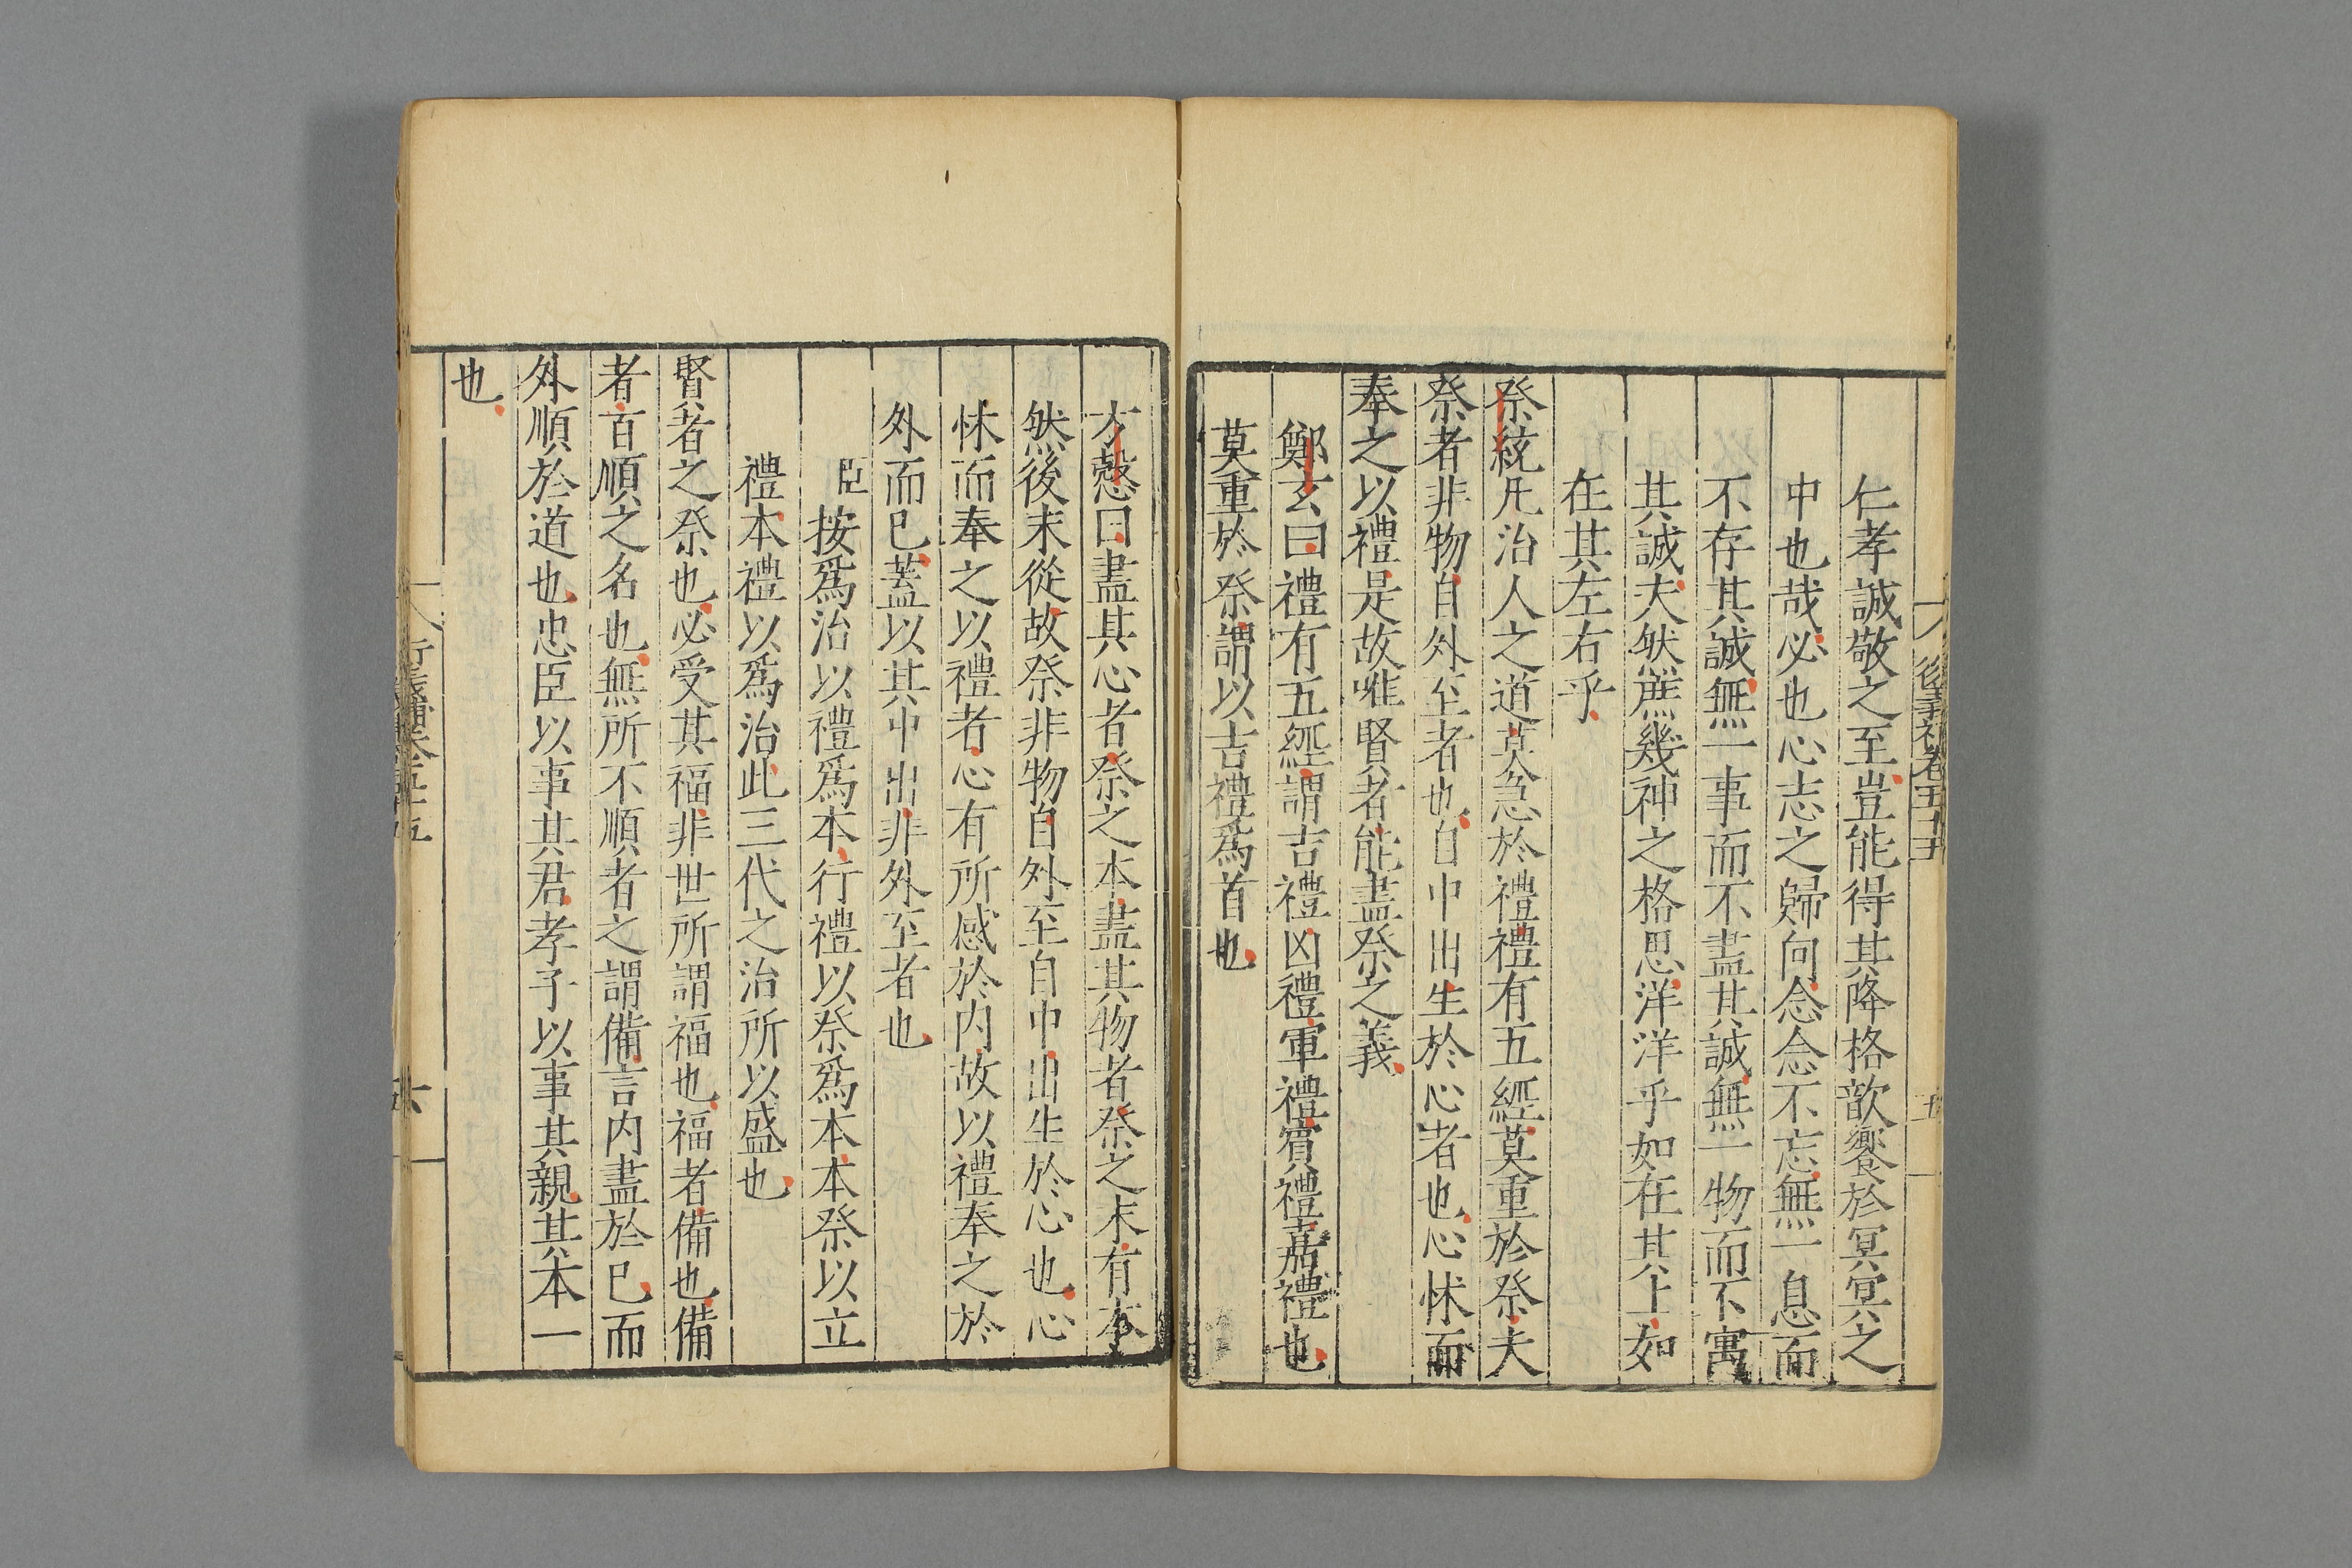 仁孝誠敬之至豈能得其降格歆饗於冥冥之
中也哉必也心志之歸向念念不忘無一息而
不存其誠無一事而不盡其誠無一物而不寓
其誠夫然庶幾神之格思洋洋乎如在其上如
在其左右乎
祭統凡治人之道莫急於禮禮有五經莫重於祭夫
祭者非物自外至者也自中出生於心者也心怵而
奉之以禮是故唯賢者能盡祭之義
鄭玄曰禮有五經謂吉禮凶禮軍禮賓禮嘉禮也
莫重於祭謂以吉禮爲首也
方慤曰盡其心者祭之本盡其物者祭之末有本
然後末從故祭非物自外至自中出生於心也心
怵而奉之以禮者心有所感於内故以禮奉之於
外而已蓋以其中出非外至者也
臣按爲治以禮爲本行禮以祭爲本本祭以立
禮本禮以爲治此三代之治所以盛也
賢者之祭也必受其福非世所謂福也福者備也備
者百順之名也無所不順者之謂備言内盡於已而
外順於道也忠臣以事其君孝子以事其親其本一
也